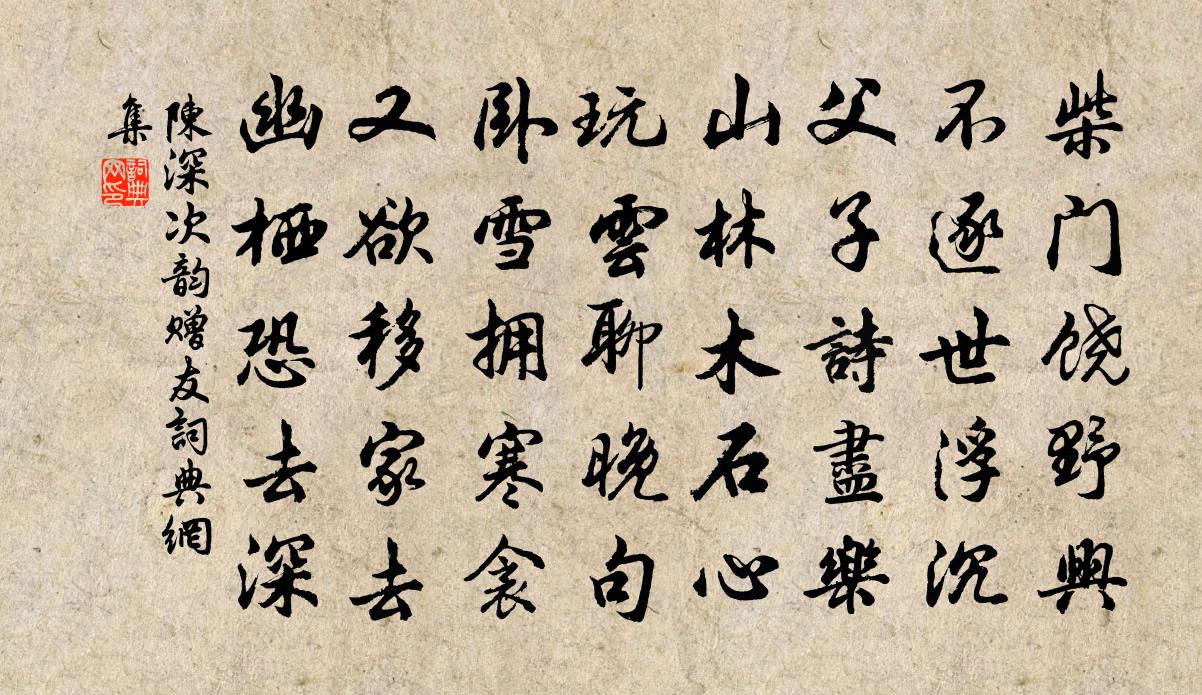 柴门饶野興
不逐世浮沉
父子詩盡樂
山林木石心
玩雲聊晚句
卧雪拥寒衾
又欲移家去
幽栖恐去深
陳深次韵赠友詞典網
集
詞典
网印